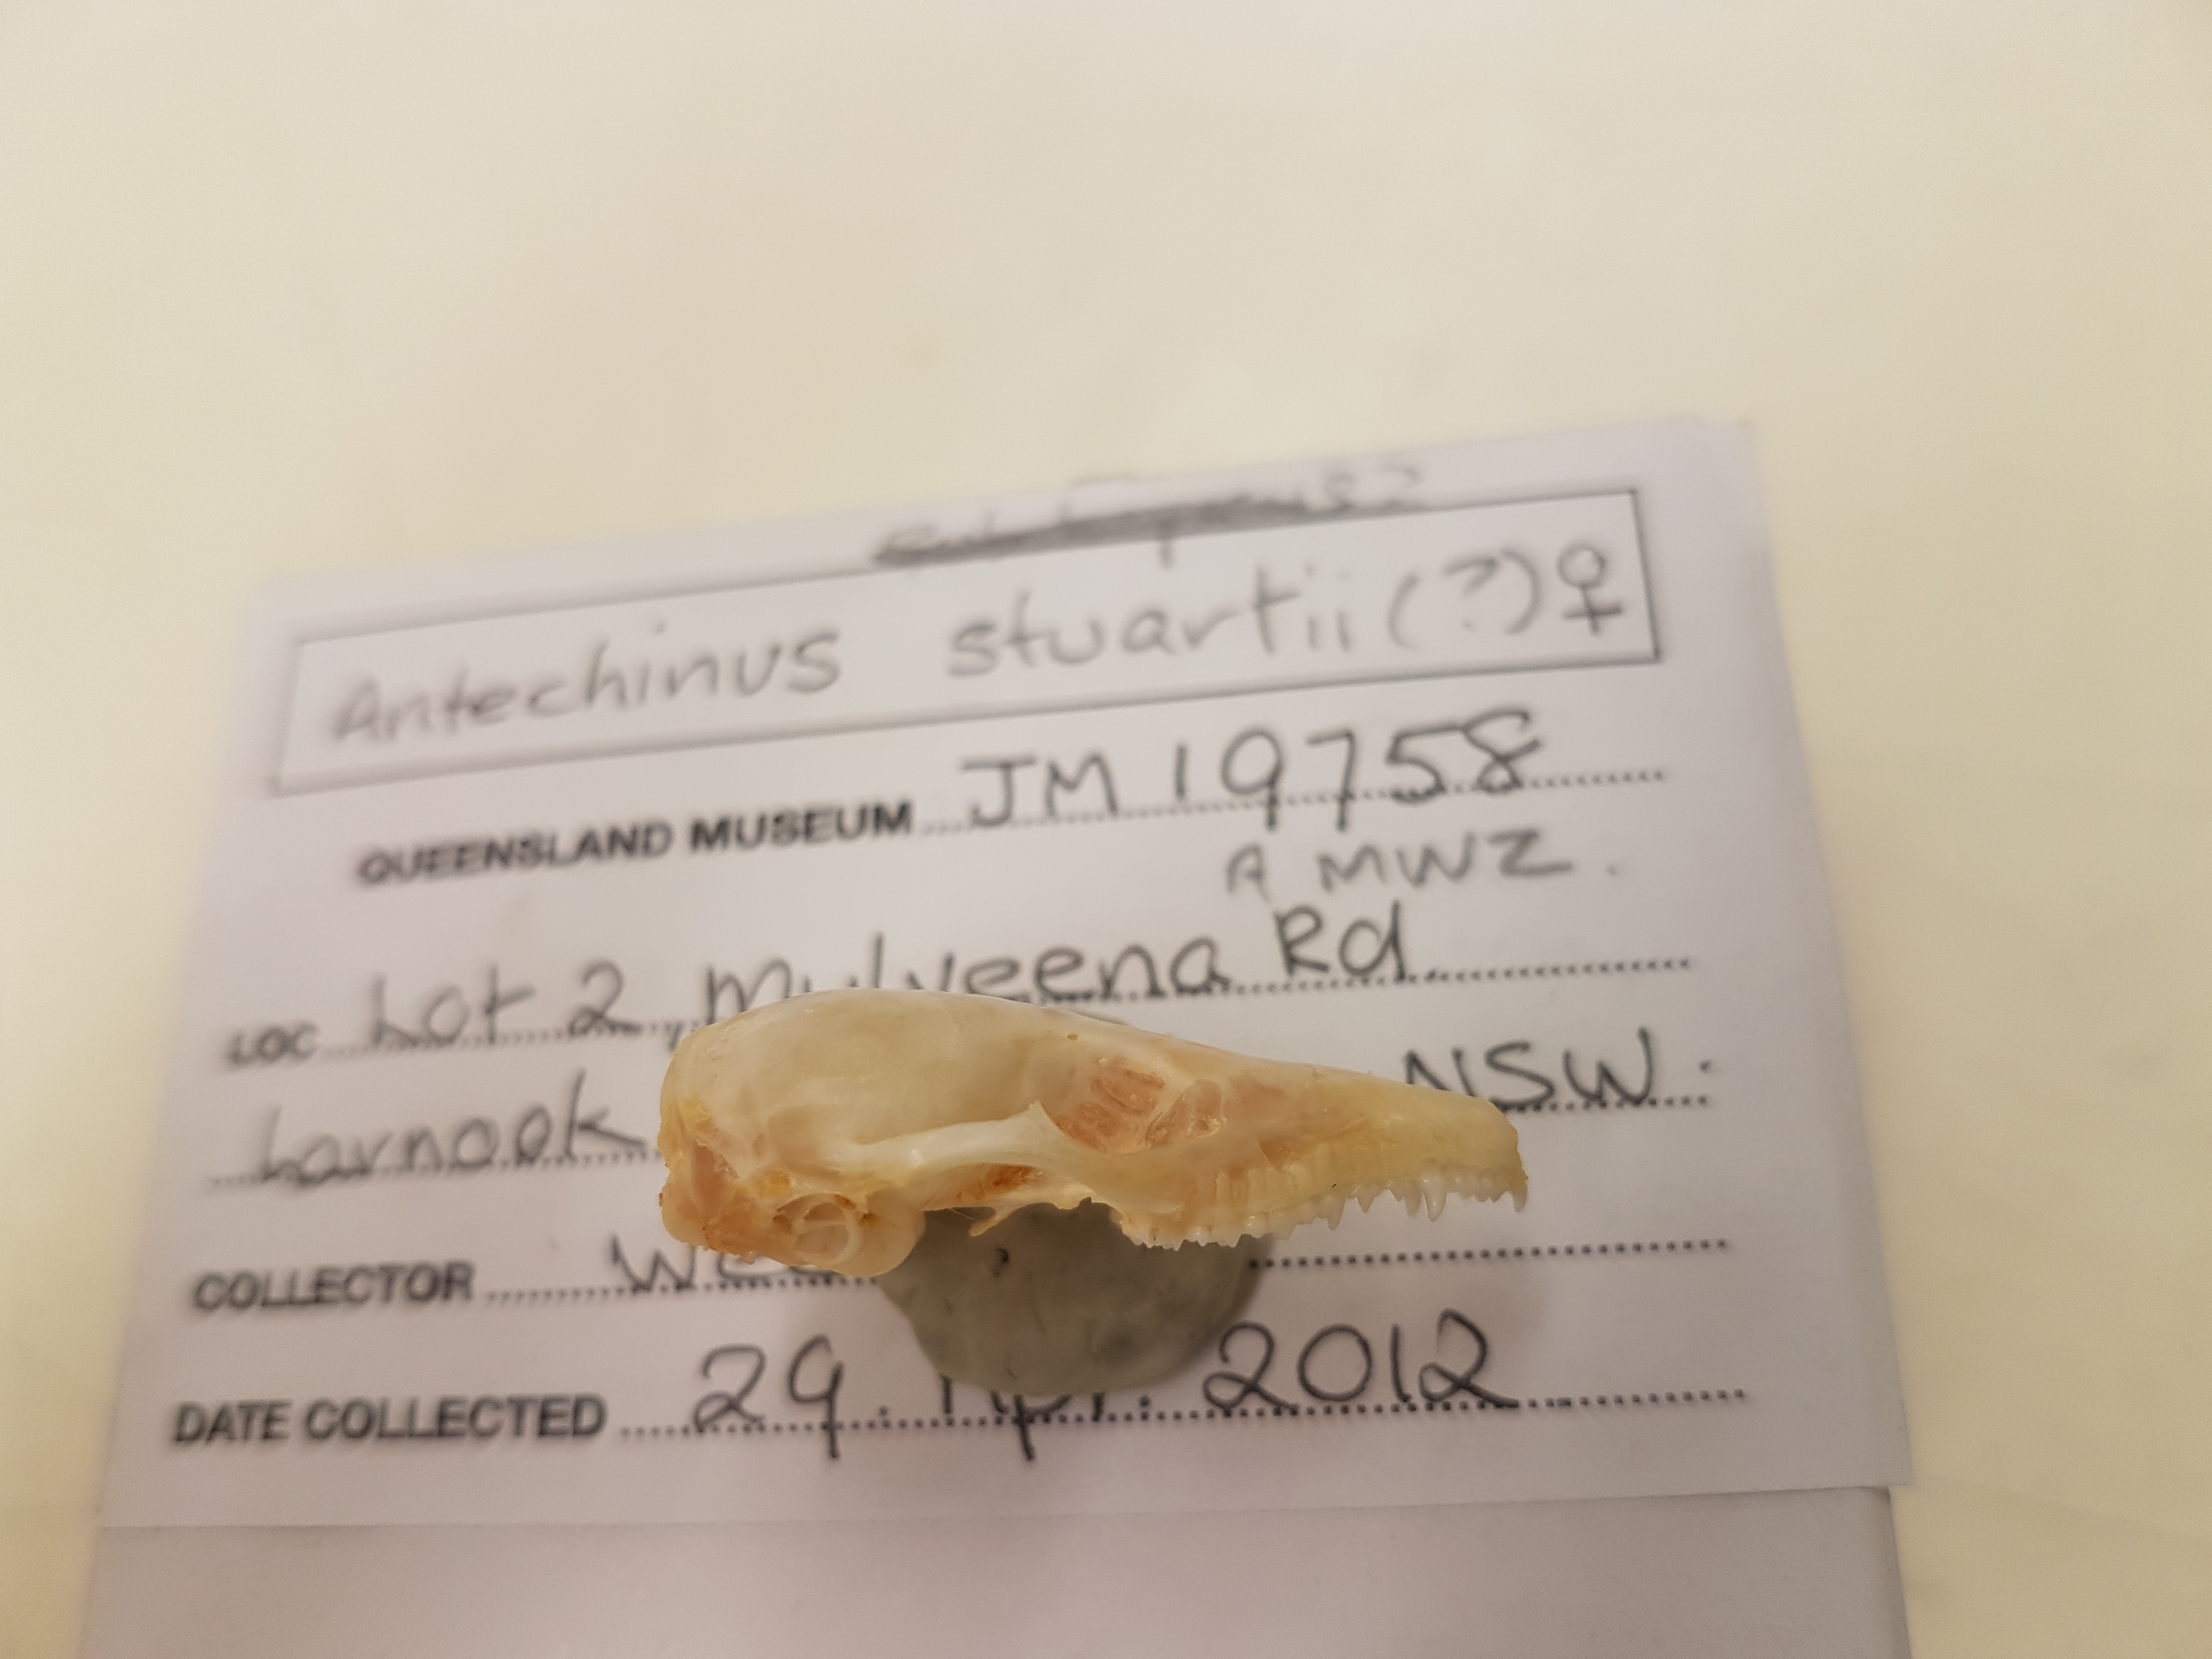 Antechinus stuartii (?) ♀
QUEENSLAND MUSEUM JM 19758
A MWZ.
LOC Lot 2, Mulveena Rd
NSW.
COLLECTOR
DATE COLLECTED 29 April 2012